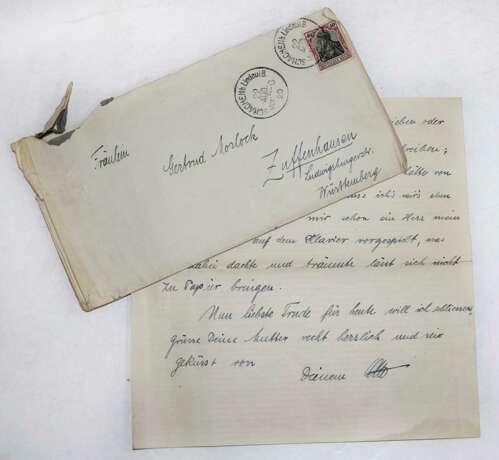 SCHACHEN b. Lindau i. B.
22 AUG
20
Fräulein
Gertrud Noslock
Zuffenhausen
Ludwigsburgerstr.
Württemberg
ieben oder
reiben;
hätte von
ich's mir's eben
mir schon ein Herz mein
auf dem Klavier vorgespielt, was
dabei dachte und träumte lässt sich nicht
zu Papier bringen.
Nun liebste Trude für heute will ich schliessen,
grüsse Deine Mutter recht herzlich und sei
geküsst von
Deinem Otto